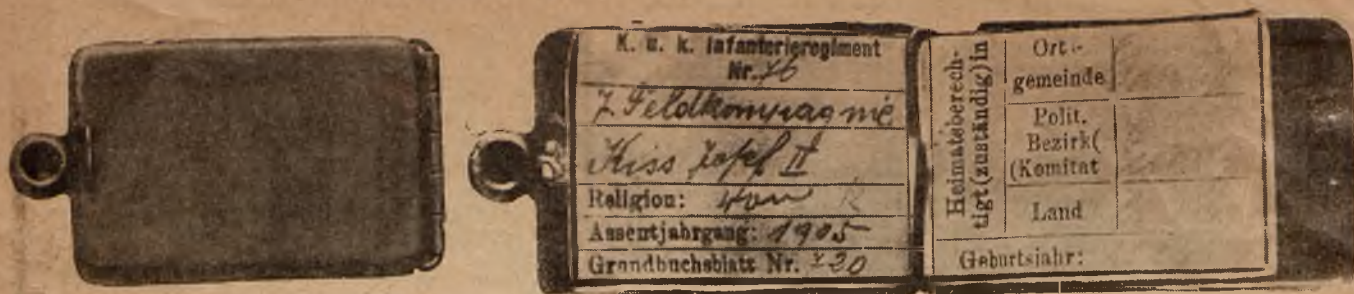 K. u. k. Infanterieregiment
Nr. 76
7. Feldkompagnie
Kiss Josef II
Religion:
Assentjahrgang: 1905
Grundbuchsblatt Nr.
Heimatsberech-
tigt (zuständig) in
Orts-
gemeinde
Polit.
Bezirk(
(Komitat
Land
Geburtsjahr: